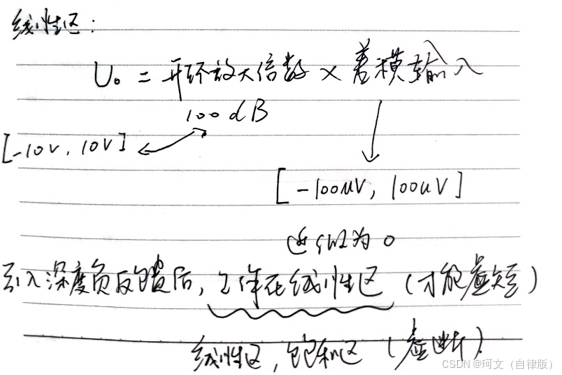 线性区：
U₀ = 开环放大倍数 × 差模输入
100dB
[-10V, 10V]
[-100uV, 100uV]
近似为0
引入深度负反馈后，工作在线性区（才能虚短）
线性区，饱和区（虚断）
CSDN @珂文（自律版）